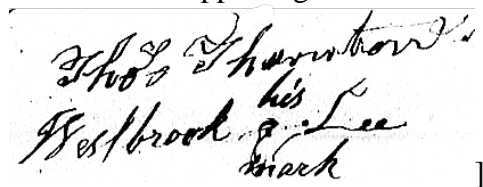 Thos Thornton
his
Westbrook & Lee
mark
]